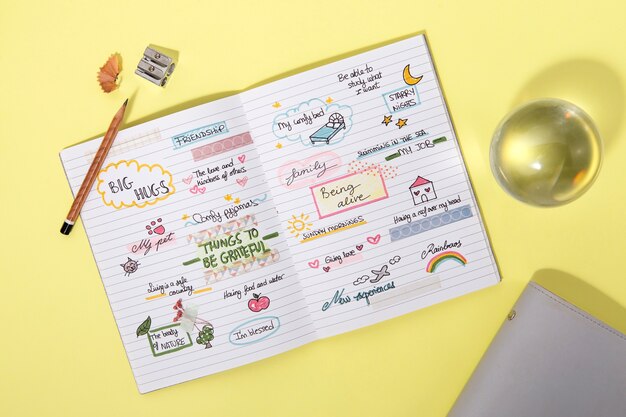 FRIENDSHIP
BIG HUGS
The love and
kindness of others
My pet
Comfy pyjamas
THINGS TO
BE GRATEFUL
Living in a safe
country
Having food and water
The beauty
of NATURE
I'm blessed
Be able to
study what
I want
My comfy bed
STARRY
NIGHTS
SWIMMING IN THE SEA
MY JOB
family
Being
alive
Having a roof over my head
SUNDAY MORNINGS
Giving love
Rainbows
New experiences